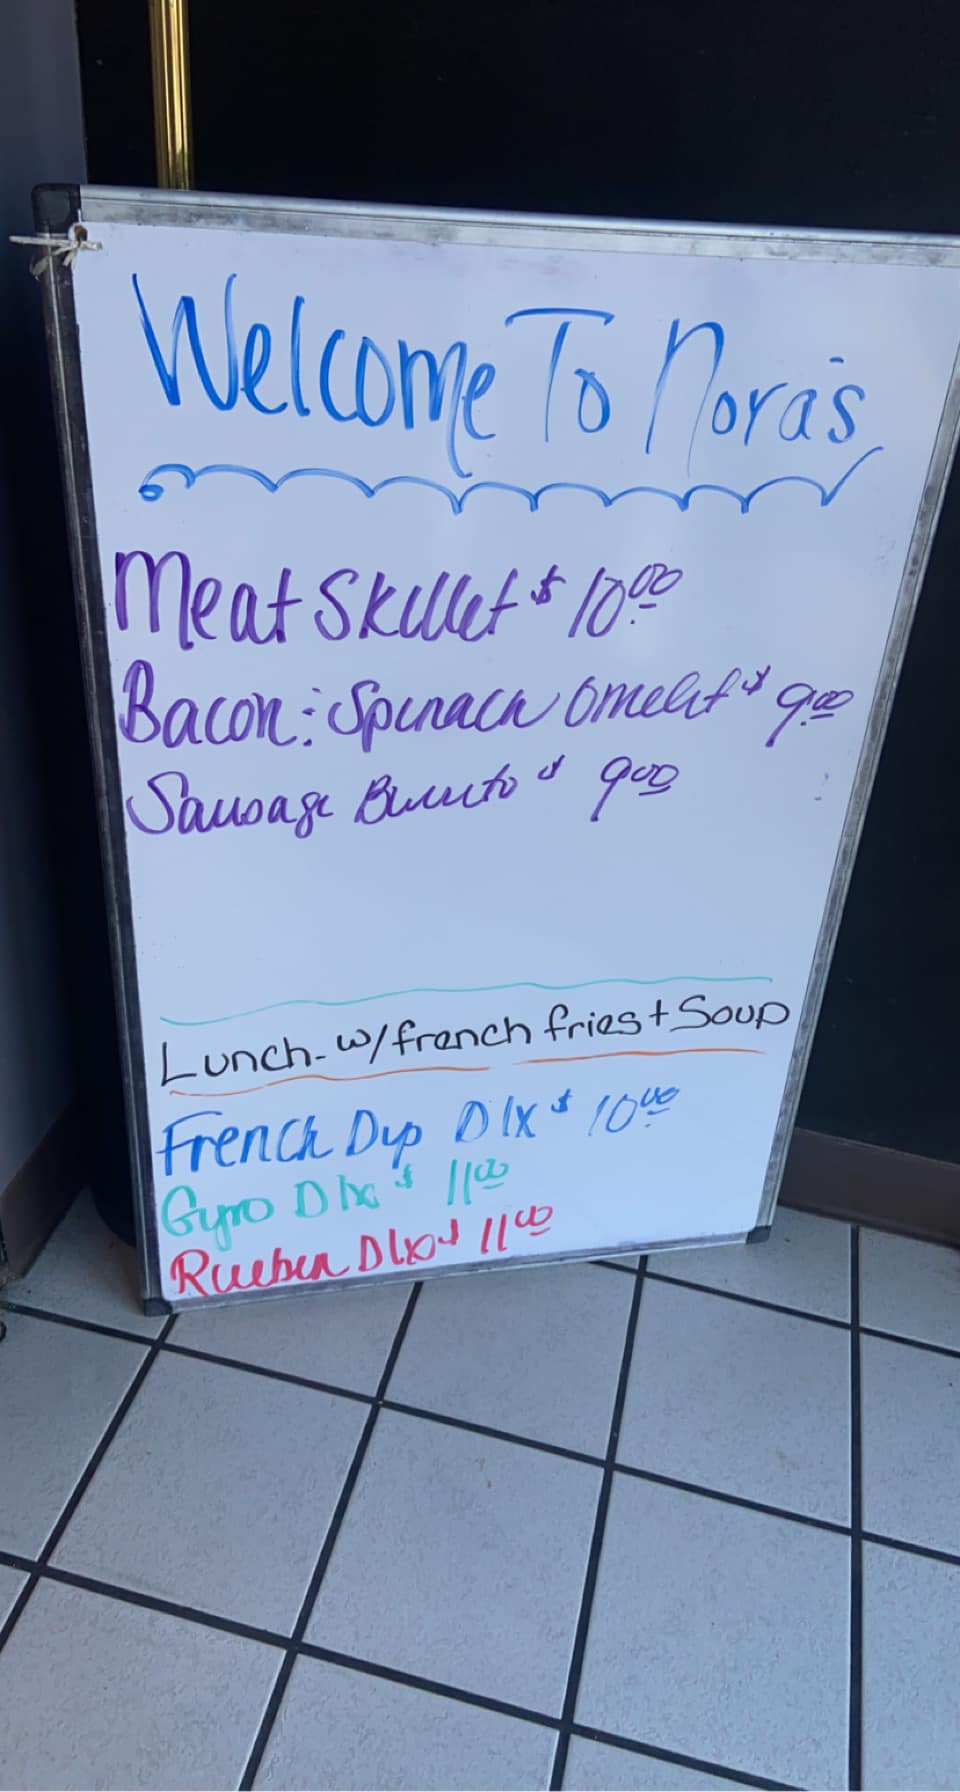 Welcome To Nora's
Meat Skillet $ 10.00
Bacon : Spinach Omelet $ 9.00
Sausage Burrito $ 9.00
Lunch - w/ french fries + Soup
French Dip Dlx $ 10.00
Gyro Dlx $ 11.00
Rueben Dlx $ 11.00